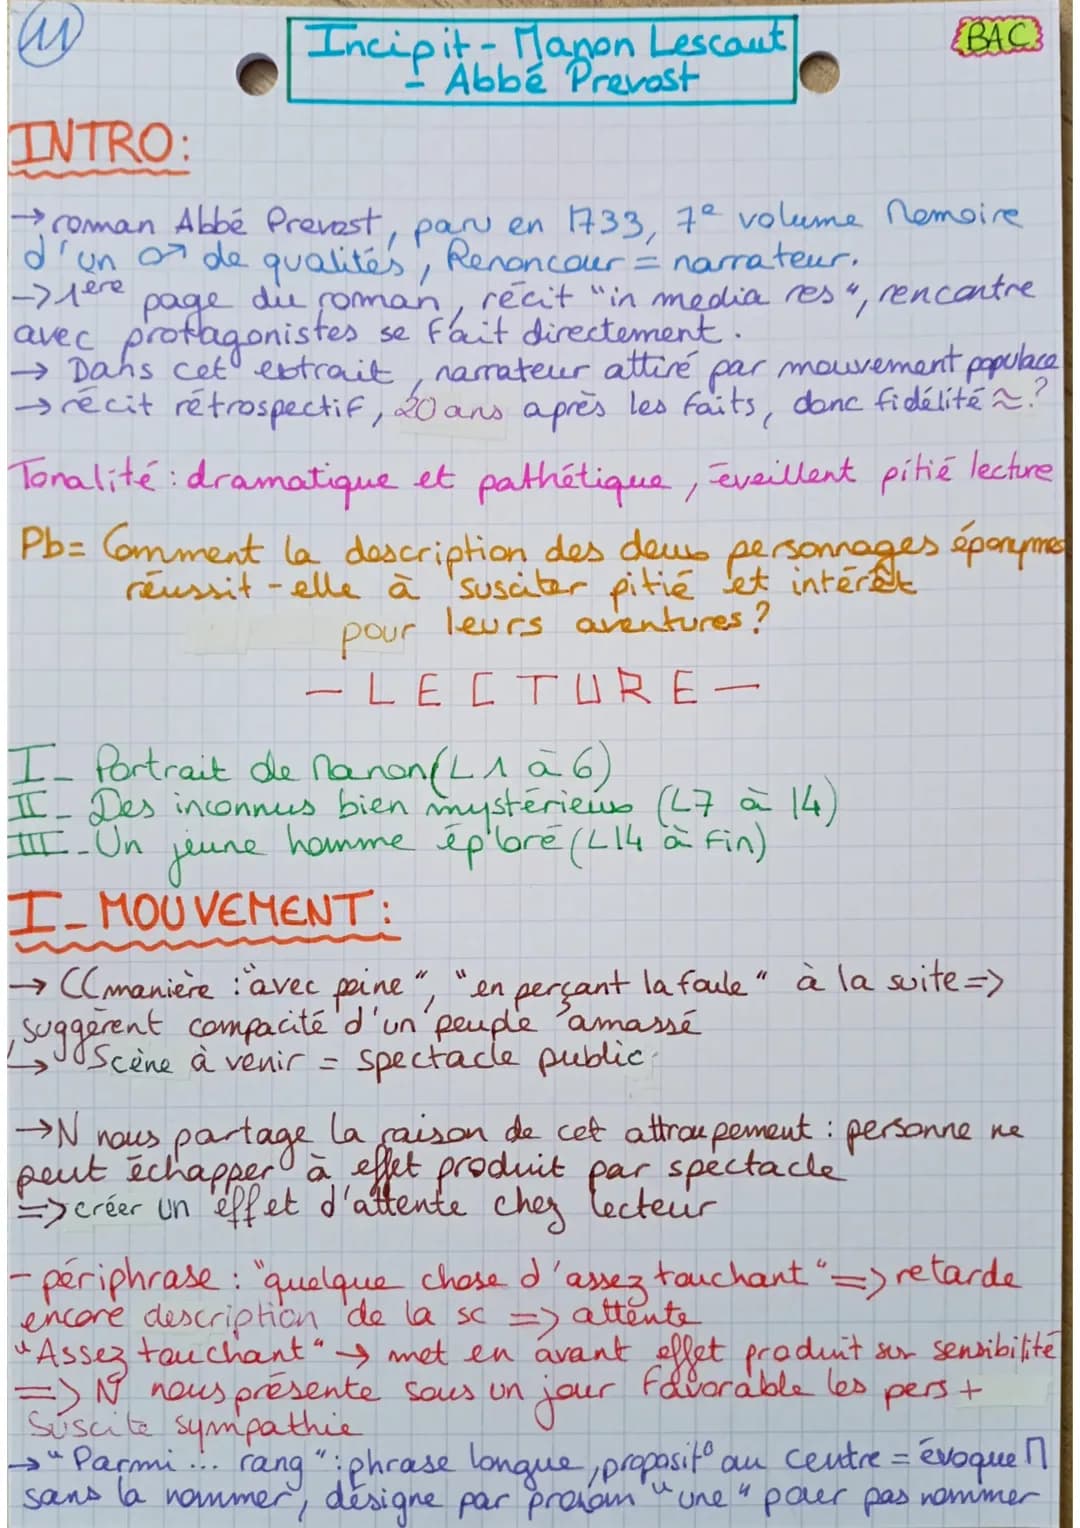 11
Incipit - Manon Lescaut
- Abbé Prevost
BAC
INTRO:
→ roman Abbé Prevost, paru en 1733, 7e volume Memoire
d'un ♂ de qualités, Renoncour = narrateur.
→ 1ère page du roman, récit "in media res", rencontre
avec protagonistes se fait directement.
→ Dans cet extrait, narrateur attiré par mouvement populace
→ récit rétrospectif, 20 ans après les faits, donc fidélité ≈?
Tonalité : dramatique et pathétique, éveillent pitié lecture
Pb= Comment la description des deux personnages éponymes
réussit-elle à susciter pitié et intérêt
pour leurs aventures?
- LECTURE -
I - Portrait de Manon (L1 à 6)
II - Des inconnus bien mystérieux (L7 à 14)
III - Un jeune homme éploré (L14 à fin)
I - MOUVEMENT:
→ CCmanière : "avec peine", "en perçant la foule" à la suite =>
suggèrent compacité d'un peuple amassé
↳ Scène à venir = spectacle public
→ N nous partage la raison de cet attroupement : personne ne
peut échapper à effet produit par spectacle
=> créer un effet d'attente chez lecteur
- périphrase : "quelque chose d'assez touchant" => retarde
encore description de la sc => attente
"Assez touchant" → met en avant effet produit sur sensibilité
=> N nous présente sous un jour favorable les pers +
Suscite sympathie
→ "Parmi ... rang" : phrase longue, propositº au centre = évoque M
sans la nommer, désigne par pronom "une" pour pas nommer